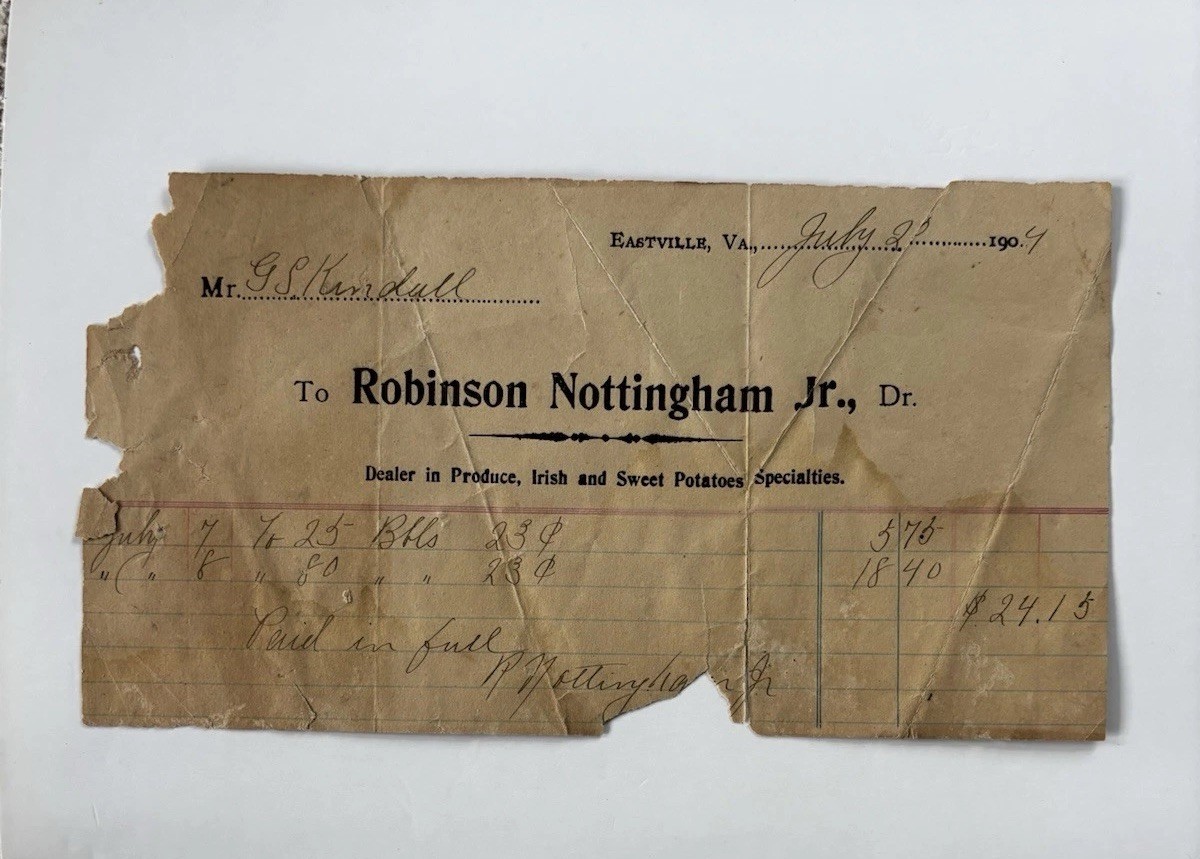 Eastville, Va., July 2 1904
Mr. G S Kendall
To Robinson Nottingham Jr., Dr.
Dealer in Produce, Irish and Sweet Potatoes Specialties.
July 7 To 25 Bbls 23 ¢ 5 75
" " 8 " 80 " " 23 ¢ 18 40
$ 24.15
Paid in full
R Nottingham Jr